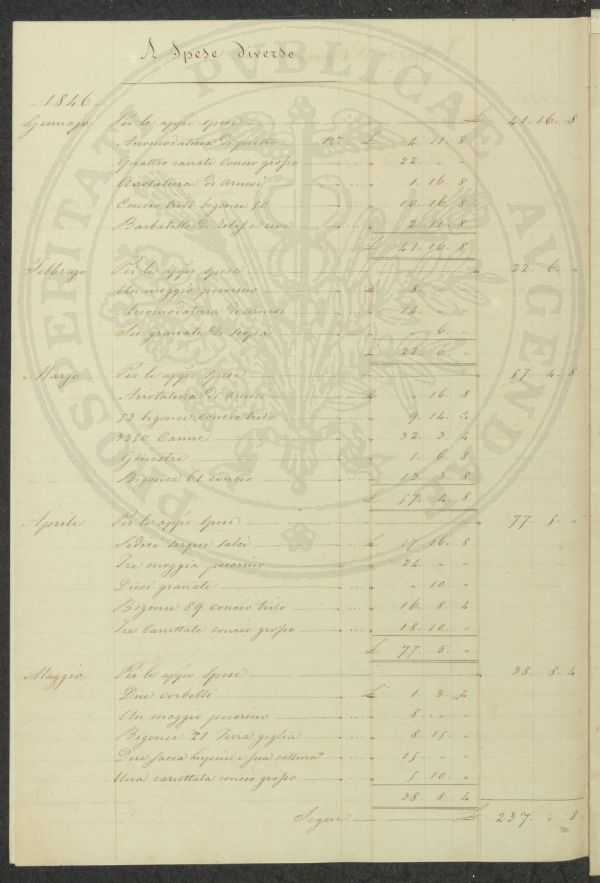 A Spese diverse
- 1846 -
Gennajo Per le appo spese £ 41. 16. 8
Accomodatura di £ 4. 11. 8
Quattro carrate Concio grosso " 22. " "
Arrotatura di Arnesi " 1. 16. 8
Concio trito bigonce 80 " 10. 16. 8
Barbatelle di " 2. 11. 8
£ 41. 16. 8
Febbrajo Per le appo spese " 22. 6. "
Un moggio pecorino £ 8. " "
Accomodatura di arnesi " 14. " "
Sei granate di scopa " " 6. "
£ 22. 6. "
Marzo Per le appo spese " 57. 4. 8
Arrotatura di arnesi £ " 16. 8
53 bigonce concio trito " 9. 14. 4
Canne " 32. 3. 4
Ginestre " 1. 6. 8
Bigonce 61 concio " 13. 3. 8
£ 57. 4. 8
Aprile Per le appo spese " 77. 5. "
Sedici serque salci £ 17. 16. 8
Tre moggia pecorino " 24. " "
Dieci granate " " 10 "
Bigonce 89 concio trito " 16. 8. 4
Tre Carrettate concio grosso " 18. 10. "
£ 77. 5. "
Maggio Per le appo spese " 38. 8. 4
Due corbelli £ 1. 3. 4
Un moggio pecorino " 8. " "
Bigonce 21 Terra geglia " 8. 15. "
sacca lupini e sua cottura " 15. " "
Una carrettata concio grosso " 5. 10. "
38. 8. 4
Segue £ 237. " 8
PROSPERITATI PVBLICAE AVGENDAE